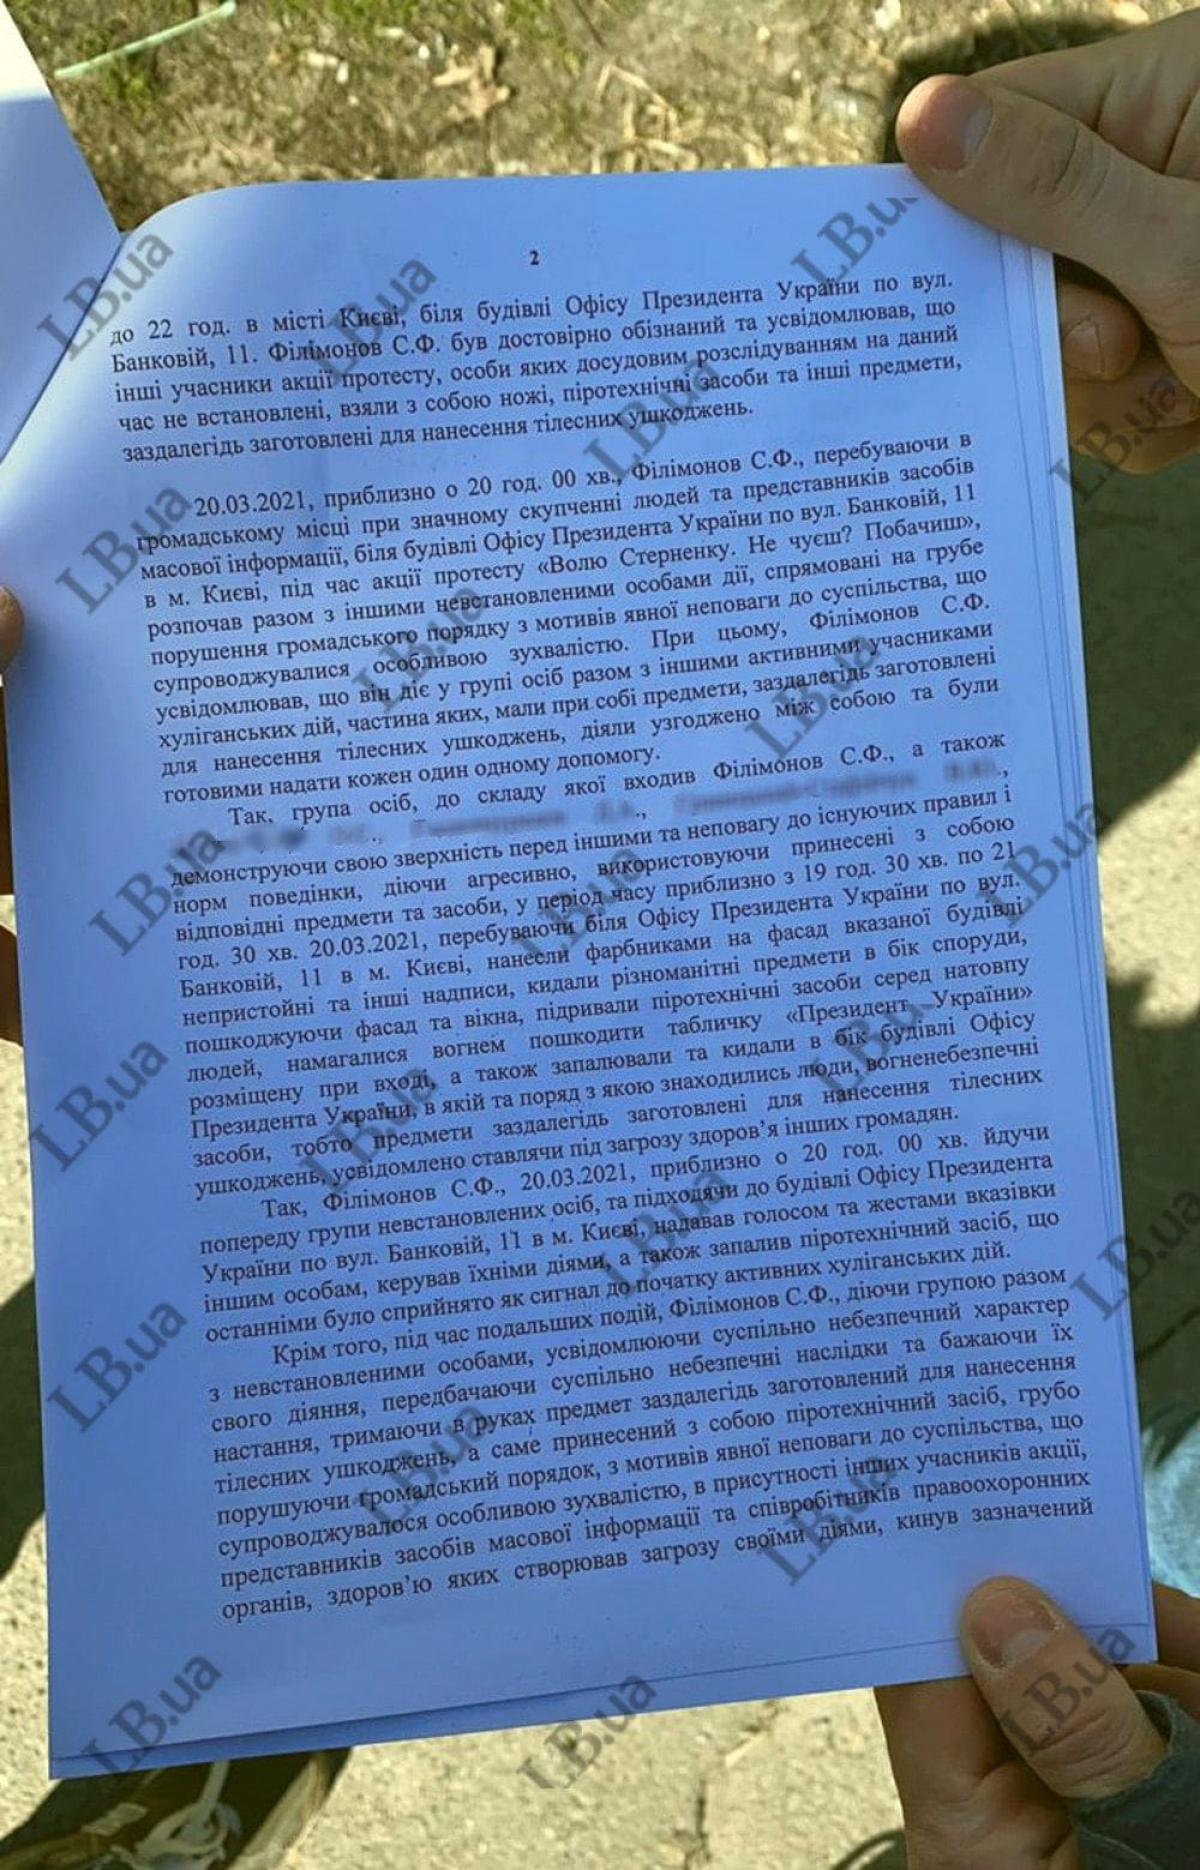 2
до 22 год. в місті Києві, біля будівлі Офісу Президента України по вул.
Банковій, 11. Філімонов С.Ф. був достовірно обізнаний та усвідомлював, що
інші учасники акції протесту, особи яких досудовим розслідуванням на даний
час не встановлені, взяли з собою ножі, піротехнічні засоби та інші предмети,
заздалегідь заготовлені для нанесення тілесних ушкоджень.
20.03.2021, приблизно о 20 год. 00 хв., Філімонов С.Ф., перебуваючи в
громадському місці при значному скупченні людей та представників засобів
масової інформації, біля будівлі Офісу Президента України по вул. Банковій, 11
в м. Києві, під час акції протесту «Волю Стерненку. Не чуєш? Побачиш»,
розпочав разом з іншими невстановленими особами дії, спрямовані на грубе
порушення громадського порядку з мотивів явної неповаги до суспільства, що
супроводжувалися особливою зухвалістю. При цьому, Філімонов С.Ф.
усвідомлював, що він діє у групі осіб разом з іншими активними учасниками
хуліганських дій, частина яких, мали при собі предмети, заздалегідь заготовлені
для нанесення тілесних ушкоджень, діяли узгоджено між собою та були
готовими надати кожен один одному допомогу.
Так, група осіб, до складу якої входив Філімонов С.Ф., а також
демонструючи свою зверхність перед іншими та неповагу до існуючих правил і
норм поведінки, діючи агресивно, використовуючи принесені з собою
відповідні предмети та засоби, у період часу приблизно з 19 год. 30 хв. по 21
год. 30 хв. 20.03.2021, перебуваючи біля Офісу Президента України по вул.
Банковій, 11 в м. Києві, нанесли фарбниками на фасад вказаної будівлі
непристойні та інші надписи, кидали різноманітні предмети в бік споруди,
пошкоджуючи фасад та вікна, підривали піротехнічні засоби серед натовпу
людей, намагалися вогнем пошкодити табличку «Президент України»
розміщену при вході, а також запалювали та кидали в бік будівлі Офісу
Президента України, в якій та поряд з якою знаходились люди, вогненебезпечні
засоби, тобто предмети заздалегідь заготовлені для нанесення тілесних
ушкоджень, усвідомлено ставлячи під загрозу здоров’я інших громадян.
Так, Філімонов С.Ф., 20.03.2021, приблизно о 20 год. 00 хв. йдучи
попереду групи невстановлених осіб, та підходячи до будівлі Офісу Президента
України по вул. Банковій, 11 в м. Києві, надавав голосом та жестами вказівки
іншим особам, керував їхніми діями, а також запалив піротехнічний засіб, що
останніми було сприйнято як сигнал до початку активних хуліганських дій.
Крім того, під час подальших подій, Філімонов С.Ф., діючи групою разом
з невстановленими особами, усвідомлюючи суспільно небезпечний характер
свого діяння, передбачаючи суспільно небезпечні наслідки та бажаючи їх
настання, тримаючи в руках предмет заздалегідь заготовлений для нанесення
тілесних ушкоджень, а саме принесений з собою піротехнічний засіб, грубо
порушуючи громадський порядок, з мотивів явної неповаги до суспільства, що
супроводжувалося особливою зухвалістю, в присутності інших учасників акції,
представників засобів масової інформації та співробітників правоохоронних
органів, здоров’ю яких створював загрозу своїми діями, кинув зазначений